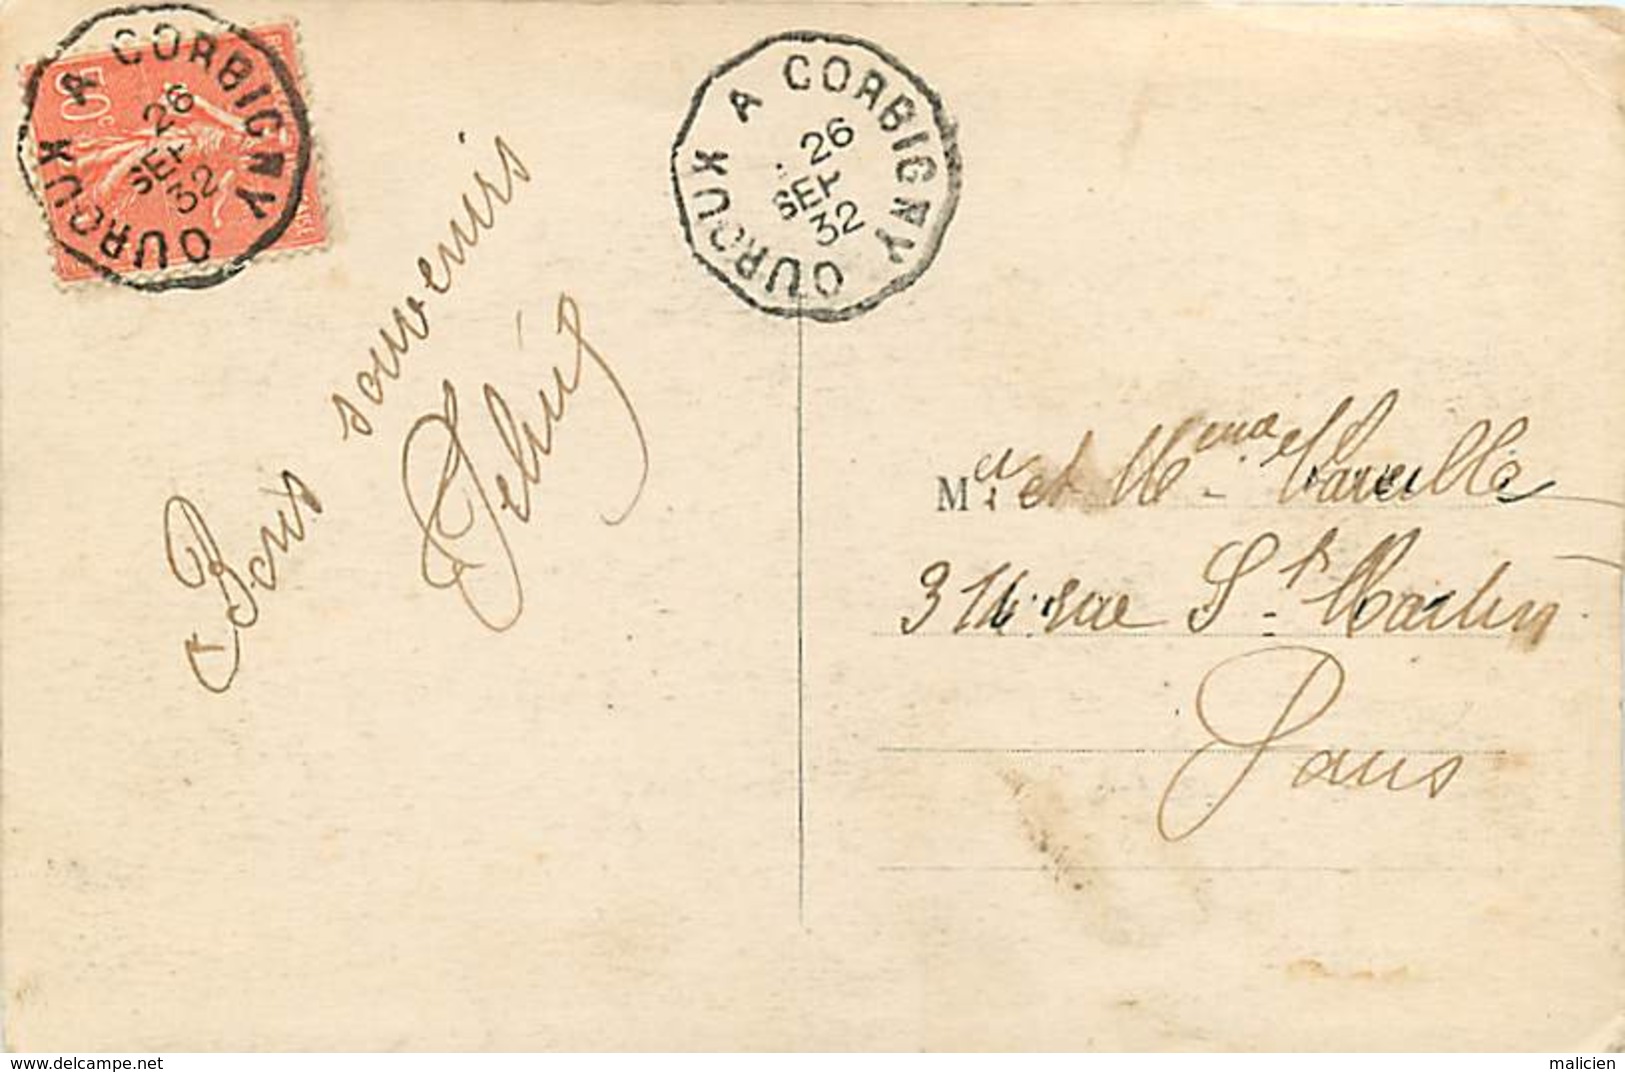 OUROUX A CORBIGNY
26
SEP
32
50c
OUROUX A CORBIGNY
26
SEP
32
Bons souvenirs
M et Mme
314 rue St Martin
Paris
https://www.delcampe.net
malicien